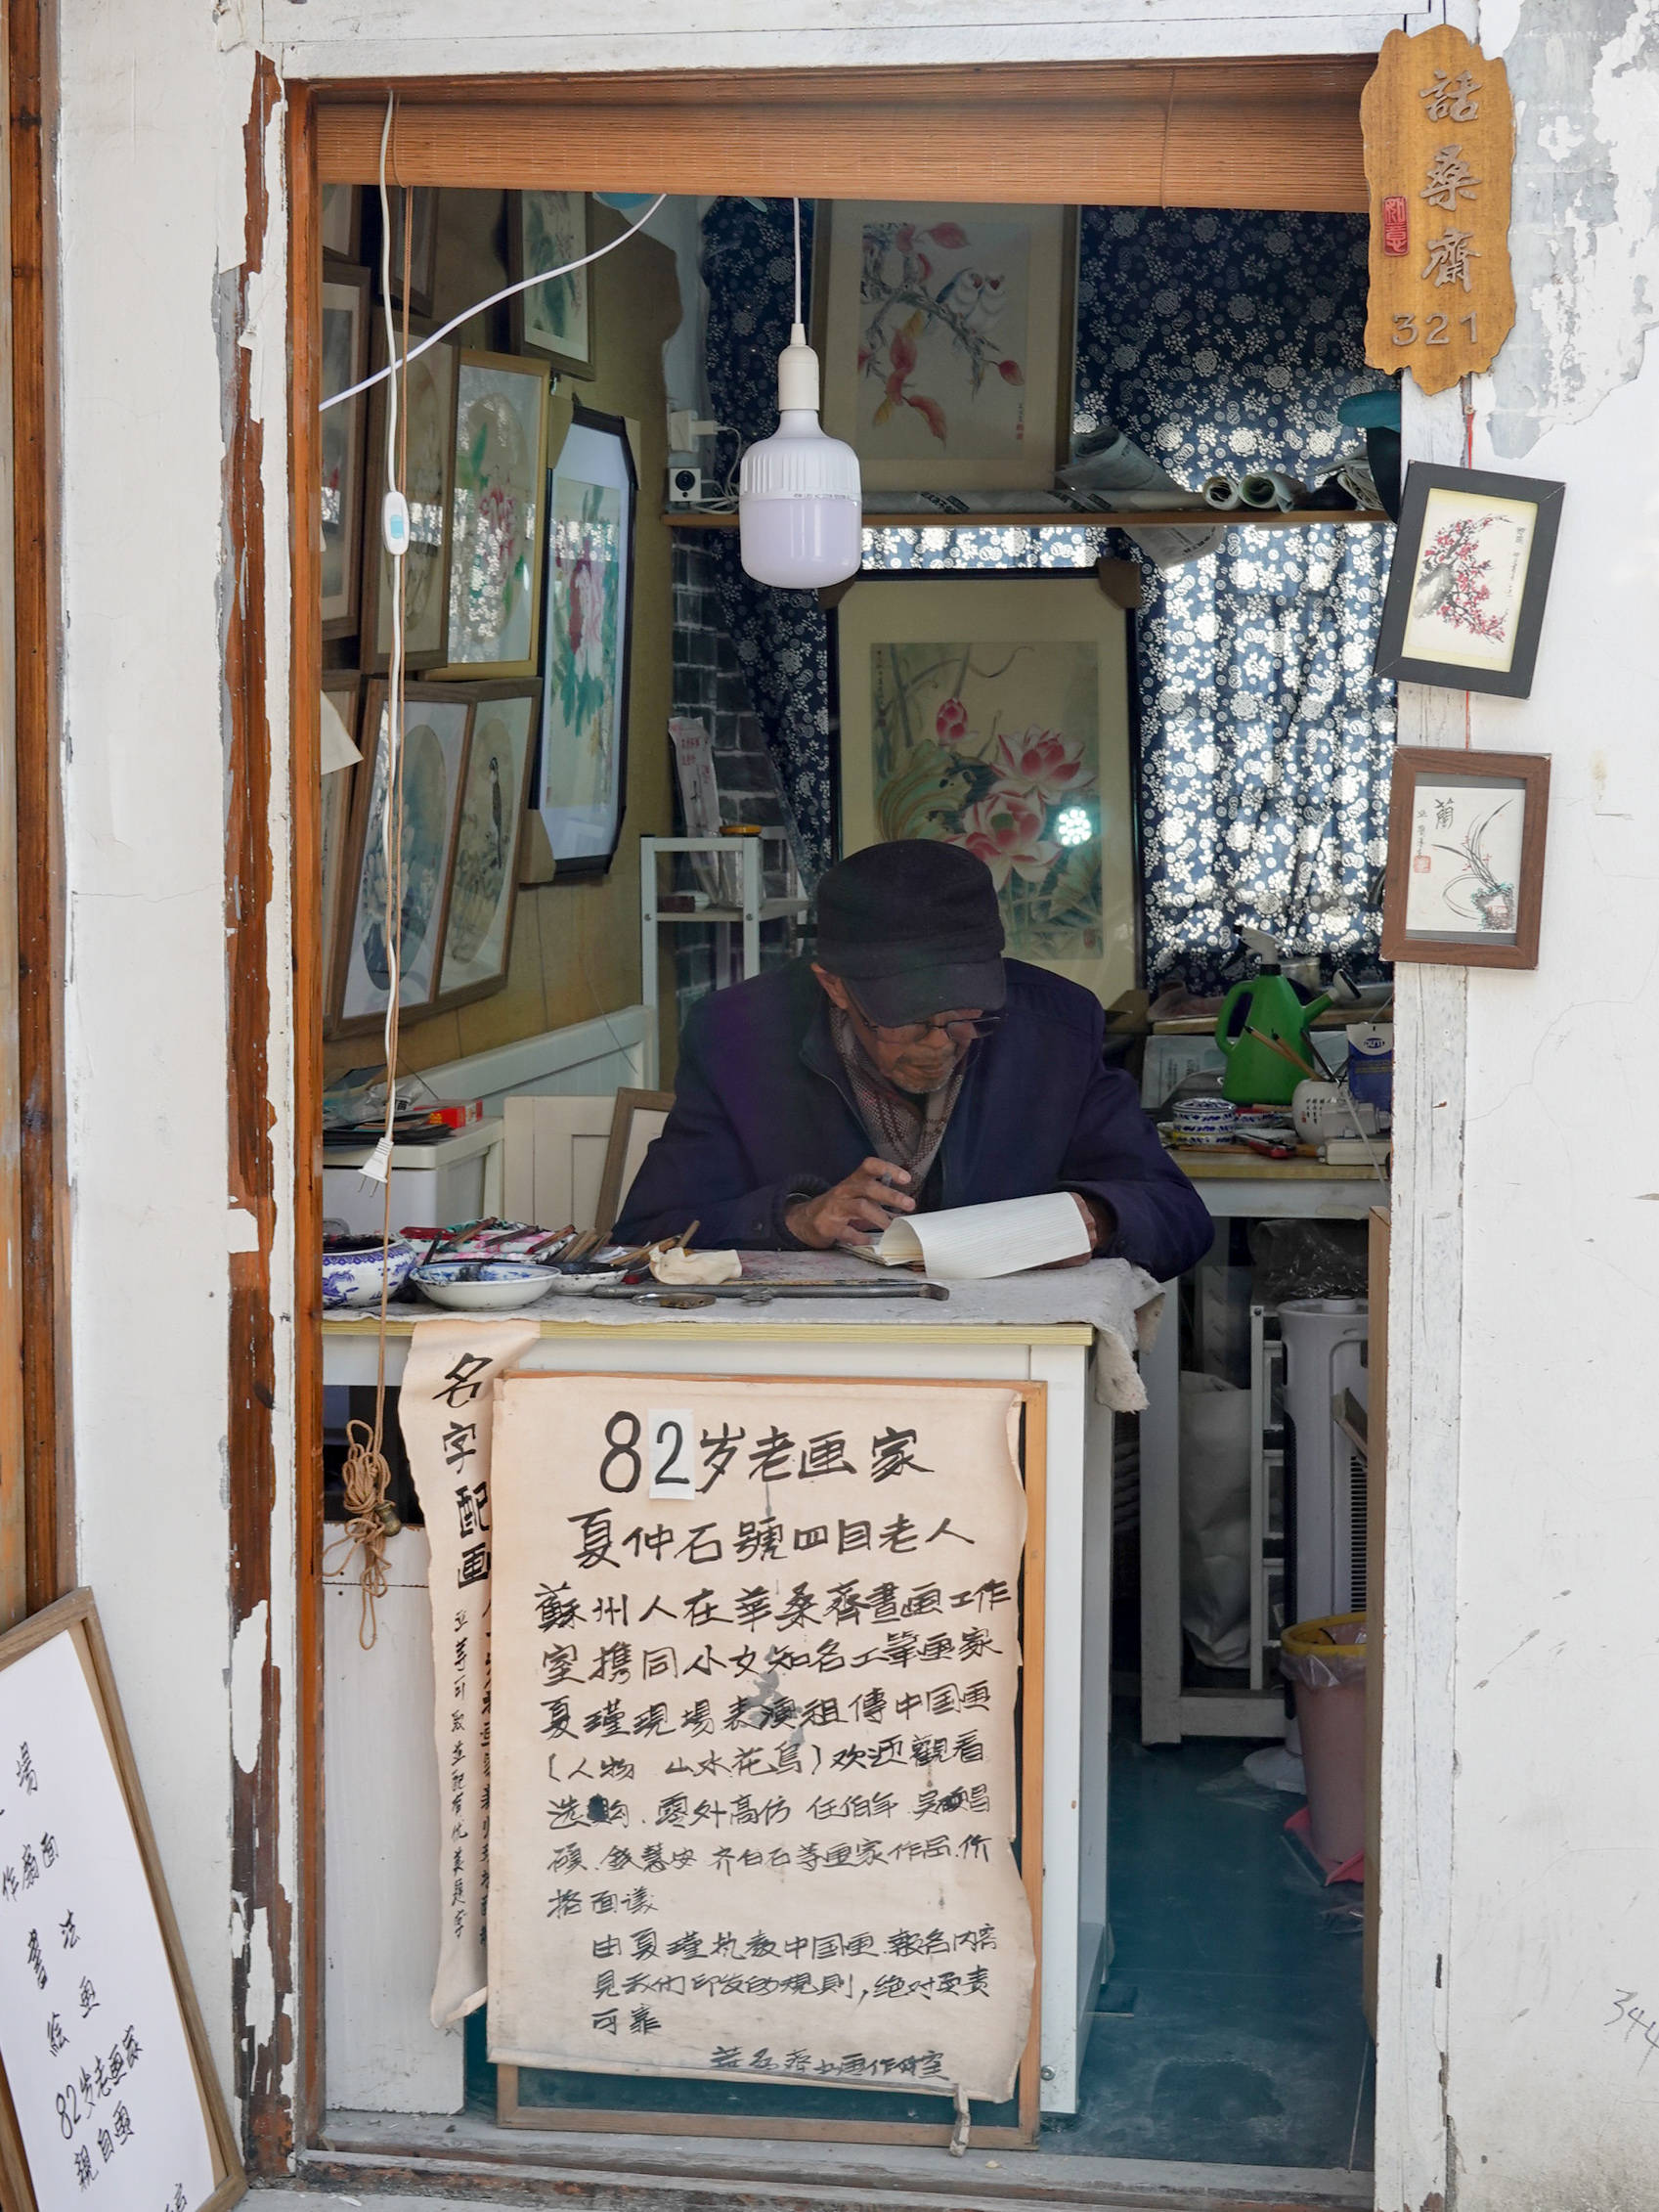 話桑齋
321
蘭
名字配画
82岁老画家
夏仲石號四目老人
蘇州人在華桑齊畫画工作
室携同小女知名工筆画家
夏瑾現場表演祖傳中国画
(人物 山水花鳥)欢迎觀看
选购.零外高仿 任伯年 吴昌
硕.錢慧安 齐白石等画家作品.价
格面议
由夏瑾执教中国画.報名内容
見我们印发的規則,绝对负责
可靠
場
作扇面
書法
绘画
82岁老画家
親自画